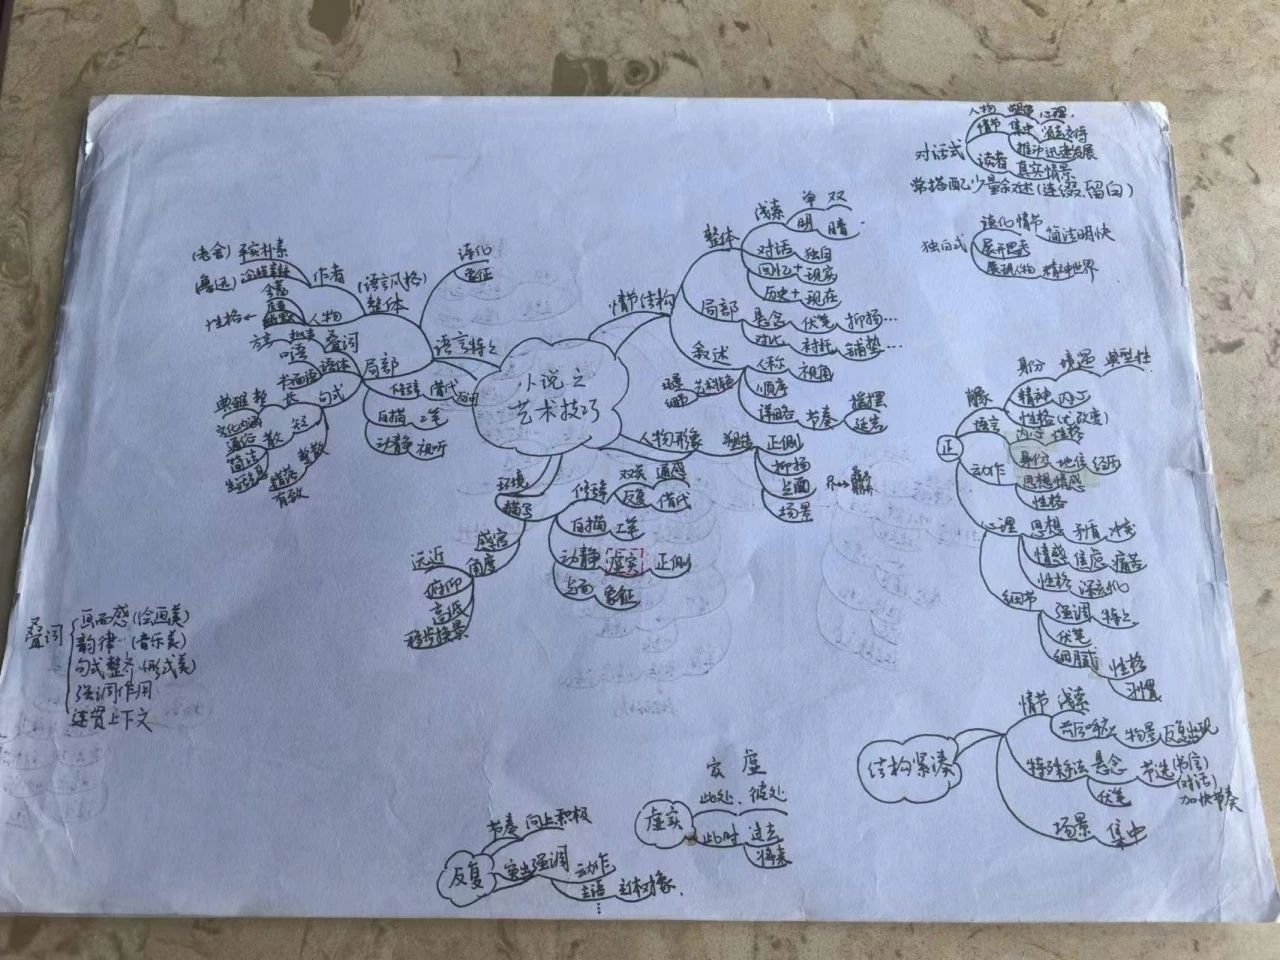 人物 塑造 心理
情节 集中
推动 迅速发展
对话式
读者 真实情景
常搭配少量叙述(连缀、留白)
读化情节 简洁明快
独白式 展开思考
展现人物 精神世界
小说之
艺术技巧
语言特色
(语言风格)
整体
作者
(老舍) 平实朴素
(鲁迅)
人物
性格←
象征
局部
叠词
方言
口语 语体
书面语
句式
典雅 整 长
文化内涵
通俗 散 短
简洁
生活气息
整散
结合
有致
修辞 借代
白描 工笔
动静 视听
情节结构
整体
线索 单 双
明 暗
对话 独白
回忆+现实
历史+现在
局部
悬念 伏笔 抑扬…
对比 衬托 铺垫…
叙述
人称 视角
顺序
详略 节奏 延宕
人物形象 塑造 正侧
抑扬
点面
场景
环境
描写
感官
角度
远近
俯仰
高低
移步换景
修辞 对照 通感
反复 借代
白描 工笔
动静 虚实 正侧
点面 象征
正
肖像
身份 境遇 典型性
精神 内心
语言
性格(尤改变)
内心 性格
动作
身份 地位 经历
思想情感
性格
心理 思想 矛盾 冲突
情感 焦虑 痛苦
性格 深刻化
细节
强调 特点
伏笔
细腻 性格
习惯
叠词
画面感(绘画美)
韵律 (音乐美)
句式整齐(形式美)
强调作用
连贯上下文
结构紧凑
情节 线索
前后呼应 物景 反复出现
特殊手法 悬念 节选(书信)
(对话)
加快节奏
伏笔
场景 集中
虚实
实 虚
此处、彼处
此时 过去
将来
反复
节奏 向上积极
突出强调 动作
主语 主体对象